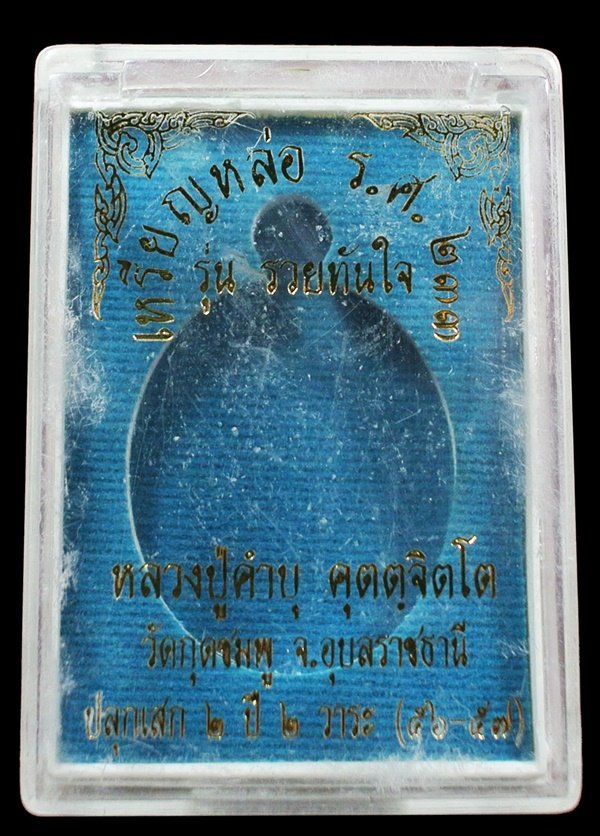 เหรียญหล่อ ร.ศ. ๒๓๓
รุ่น รวยทันใจ
หลวงปู่คำบุ คุตฺตจิตฺโต
วัดกุดชมพู จ.อุบลราชธานี
ปลุกเสก ๒ ปี ๒ วาระ (๕๖-๕๗)